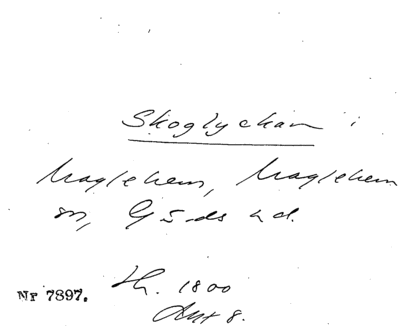 Skoglyckan i
Maglehem, Maglehem
sn, Gärds hd.
H. 1800
Nr 7897.
8.